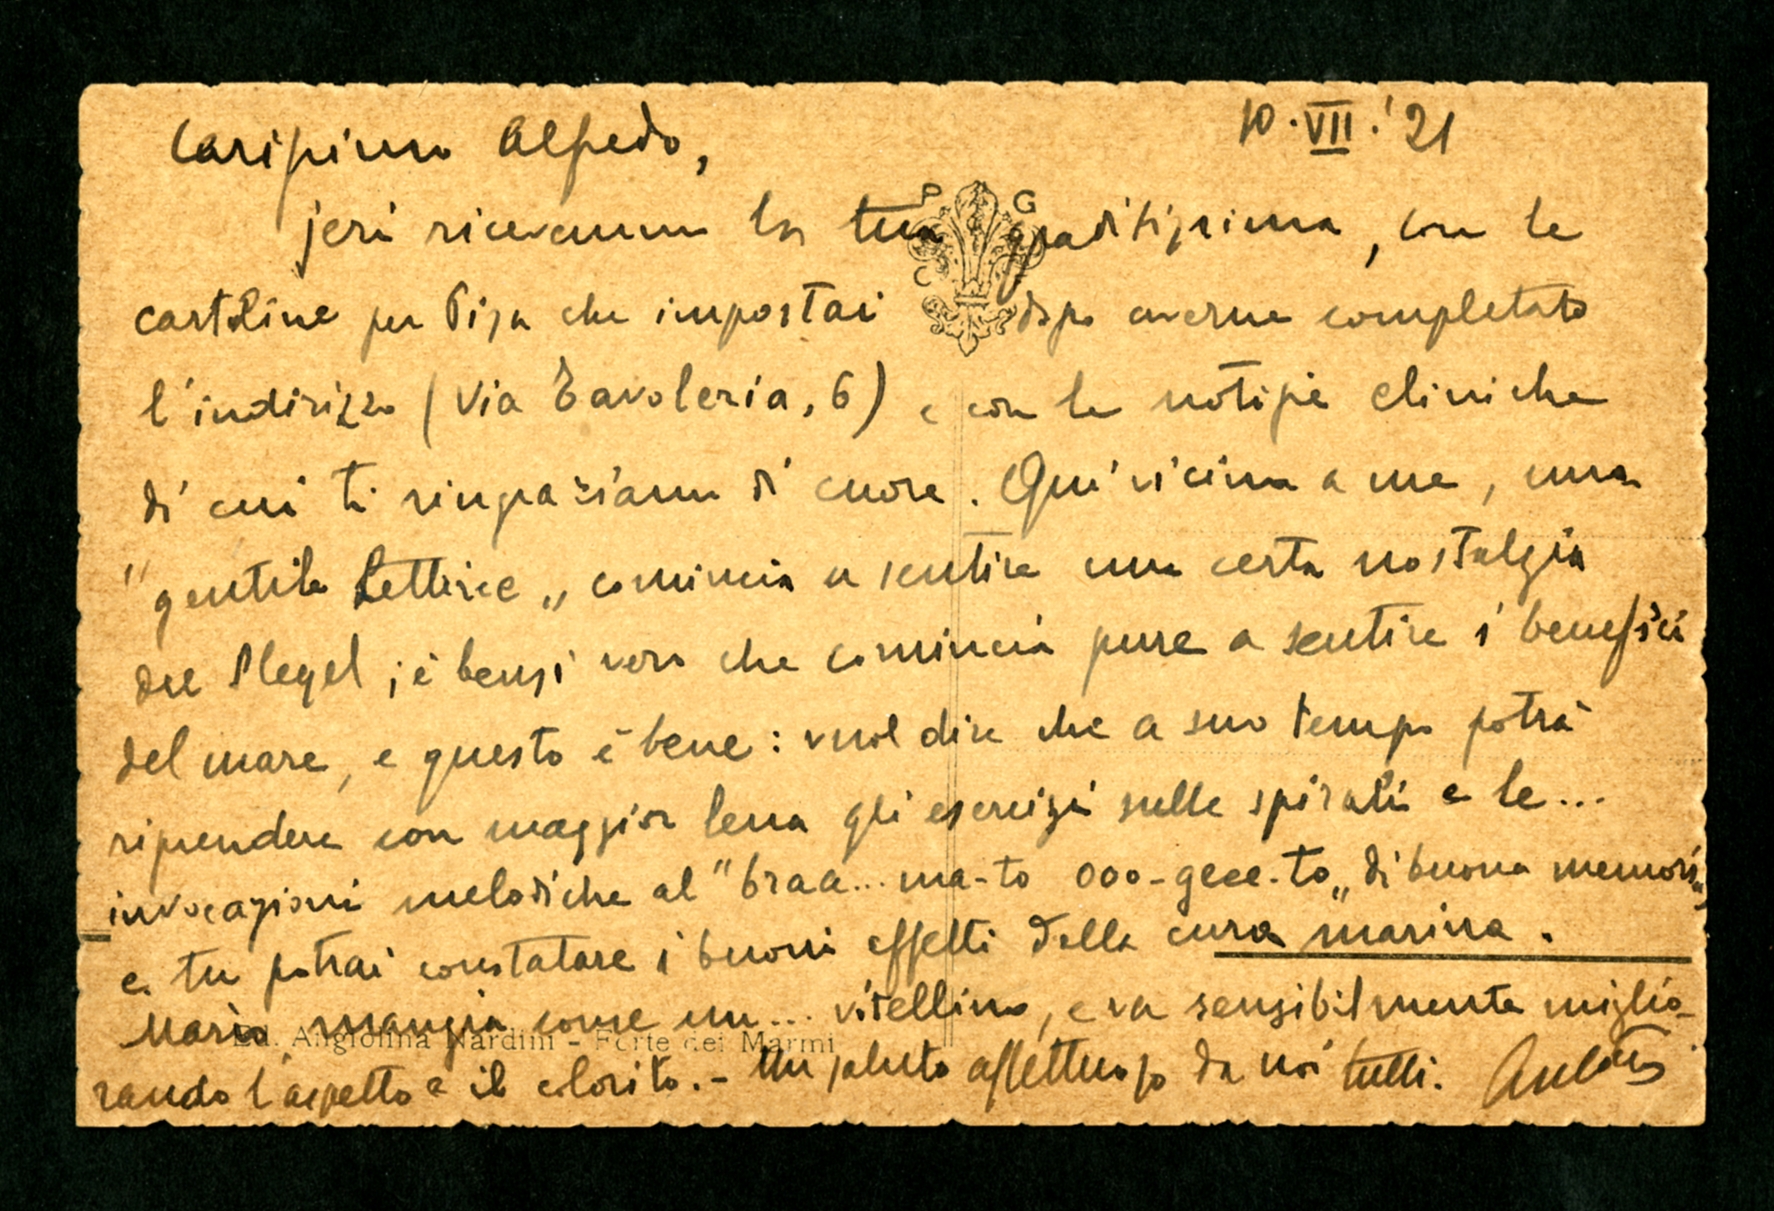 10.VII.'21
Carissimo Alfredo,
P G
jeri ricevemmo la tua graditissima, con le
C
cartoline per Pisa che impostai dopo averne completato
l'indirizzo (Via Tavoleria, 6) e con le notizie cliniche
di cui ti ringraziamo di cuore. Qui vicino a me, una
"gentile Lettrice„ comincia a sentire una certa nostalgia
del Pleyel; è bensì vero che comincia pure a sentire i benefici
del mare, e questo è bene: vuol dire che a suo tempo potrà
riprendere con maggior lena gli esercizi sulle spirali e le...
invocazioni melodiche al "braa... ma-to ooo-geee-to„ di buona memoria,
e tu potrai constatare i buoni effetti della cura marina.
Mario mangia come un... vitellino, e va sensibilmente miglio-
Ed. Angiolina Nardini - Forte dei Marmi
rando l'aspetto e il colorito. - Un saluto affettuoso da noi tutti.